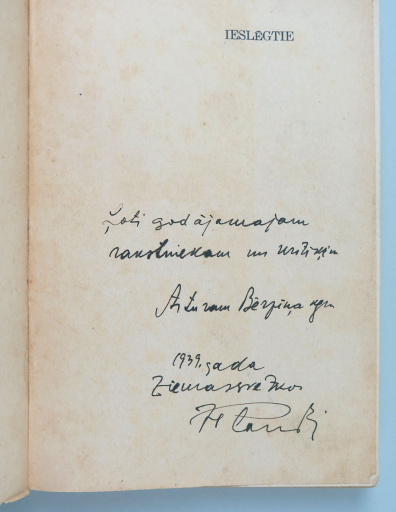 IESLĒGTIE
Ļoti godājamajam
rakstniekam un kritiķim
Arturam Bērziņa kgm
1939. gada
Ziemassvētkos